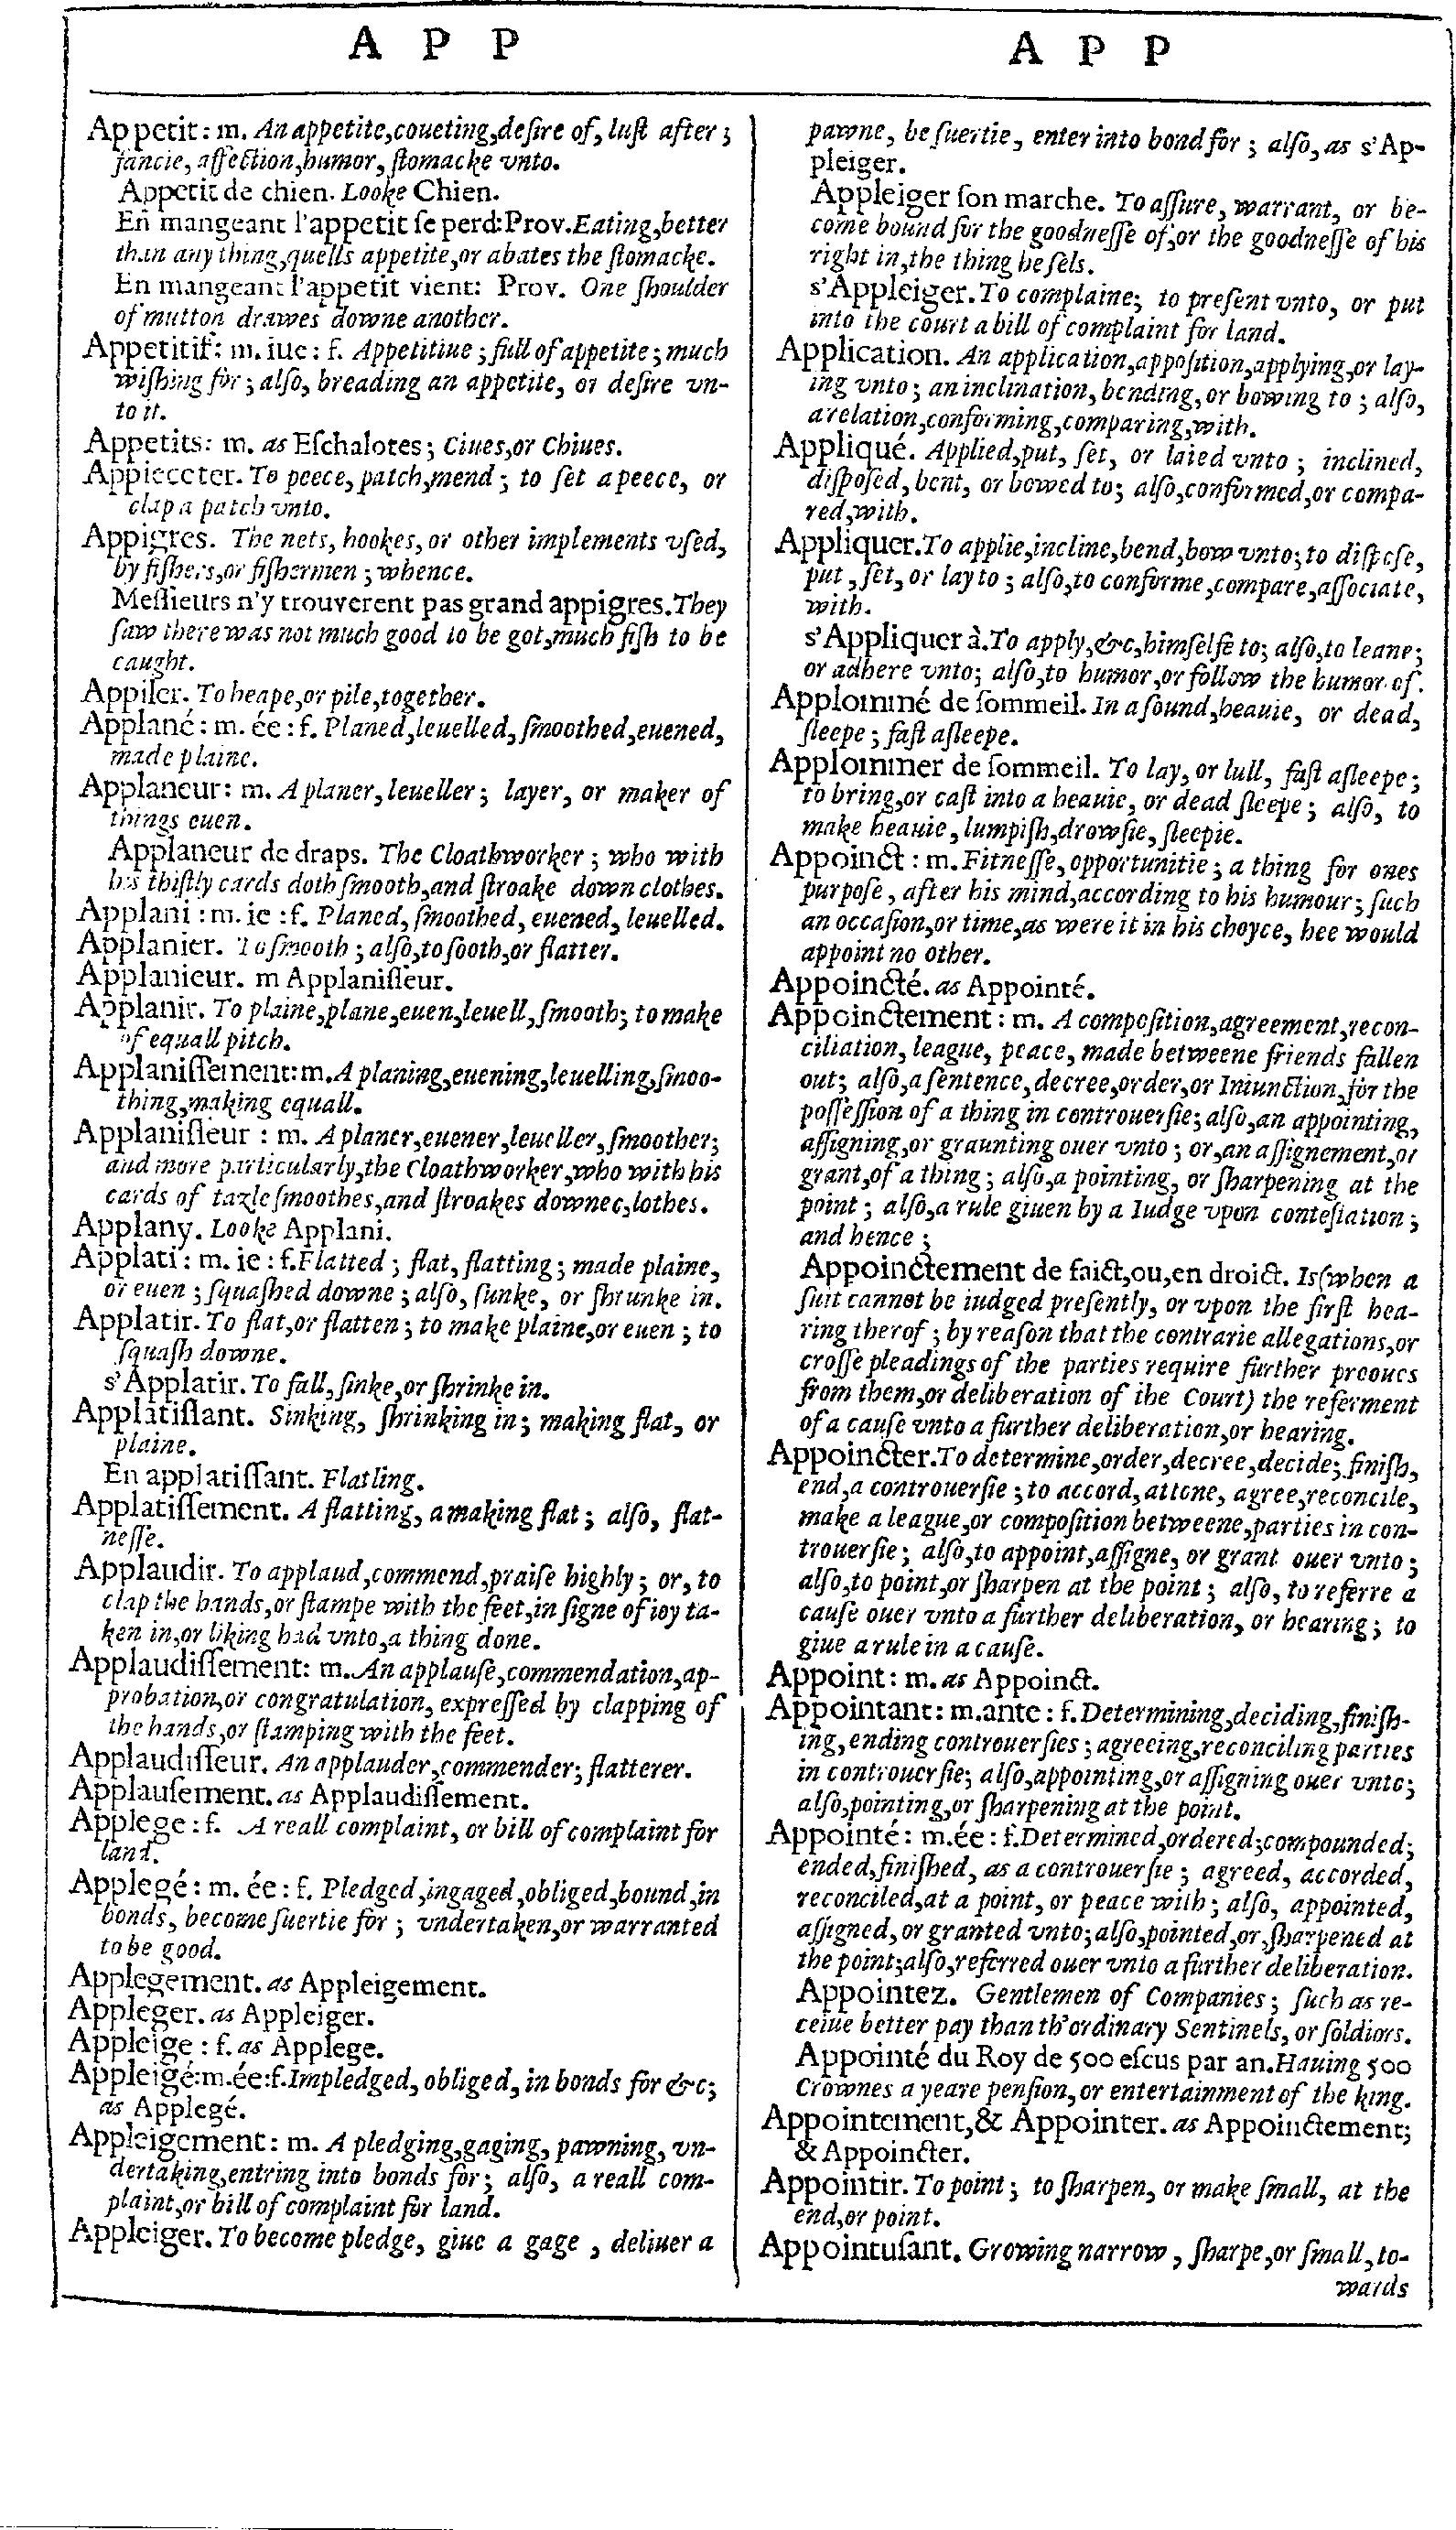 A P P
A P P
Appetit: m. An appetite, coueting, desire of, lust after;
fancie, affection, humor, stomacke vnto.
Appetit de chien. Looke Chien.
En mangeant l'appetit se perd: Prov. Eating, better
than any thing, quells appetite, or abates the stomacke.
En mangeant l'appetit vient: Prov. One shoulder
of mutton drawes downe another.
Appetitif: m. iue: f. Appetitiue; full of appetite; much
wishing for; also, breading an appetite, or desire vn-
to it.
Appetits: m. as Eschalotes; Ciues, or Chiues.
Appieceter. To peece, patch, mend; to set a peece, or
clap a patch vnto.
Appigres. The nets, hookes, or other implements vsed,
by fishers, or fishermen; whence.
Messieurs n'y trouverent pas grand appigres. They
saw there was not much good to be got, much fish to be
caught.
Appiler. To heape, or pile, together.
Applané: m. ée: f. Planed, leuelled, smoothed, euened,
made plaine.
Applaneur: m. A planer, leueller; layer, or maker of
things euen.
Applaneur de draps. The Cloathworker; who with
his thistly cards doth smooth, and stroake down clothes.
Applani: m. ie: f. Planed, smoothed, euened, leuelled.
Applanier. To smooth; also, to sooth, or flatter.
Applanieur. m Applanisseur.
Applanir. To plaine, plane, euen, leuell, smooth; to make
of equall pitch.
Applanissement: m. A planing, euening, leuelling, smoo-
thing, making equall.
Applanisseur: m. A planer, euener, leueller, smoother;
and more particularly, the Cloathworker, who with his
cards of tazle smoothes, and stroakes downe c,lothes.
Applany. Looke Applani.
Applati: m. ie: f. Flatted; flat, flatting; made plaine,
or euen; squashed downe; also, sunke, or shrunke in.
Applatir. To flat, or flatten; to make plaine, or euen; to
squash downe.
s'Applatir. To fall, sinke, or shrinke in.
Applatissant. Sinking, shrinking in; making flat, or
plaine.
En applatissant. Flatling.
Applatissement. A flatting, a making flat; also, flat-
nesse.
Applaudir. To applaud, commend, praise highly; or, to
clap the hands, or stampe with the feet, in signe of ioy ta-
ken in, or liking had vnto, a thing done.
Applaudissement: m. An applause, commendation, ap-
probation, or congratulation, expressed by clapping of
the hands, or stamping with the feet.
Applaudisseur. An applauder, commender; flatterer.
Applausement. as Applaudissement.
Applege: f. A reall complaint, or bill of complaint for
land.
Applegé: m. ée: f. Pledged, ingaged, obliged, bound, in
bonds, become suertie for; vndertaken, or warranted
to be good.
Applegement. as Appleigement.
Appleger. as Appleiger.
Appleige: f. as Applege.
Appleigé: m. ée: f. Impledged, obliged, in bonds for &c;
as Applegé.
Appleigement: m. A pledging, gaging, pawning, vn-
dertaking, entring into bonds for; also, a reall com-
plaint, or bill of complaint for land.
Appleiger. To become pledge, giue a gage, deliuer a
pawne, be suertie, enter into bond for; also, as s'Ap-
pleiger.
Appleiger son marche. To assure, warrant, or be-
come bound for the goodnesse of, or the goodnesse of his
right in, the thing he sels.
s'Appleiger. To complaine; to present vnto, or put
into the court a bill of complaint for land.
Application. An application, apposition, applying, or lay-
ing vnto; an inclination, bending, or bowing to; also,
a relation, conforming, comparing, with.
Appliqué. Applied, put, set, or laied vnto; inclined,
disposed, bent, or bowed to; also, conformed, or compa-
red, with.
Appliquer. To applie, incline, bend, bow vnto; to dispose,
put, set, or lay to; also, to conforme, compare, associate,
with.
s'Appliquer à. To apply, &c, himselfe to; also, to leane;
or adhere vnto; also, to humor, or follow the humor of.
Applommé de sommeil. In a sound, heauie, or dead,
sleepe; fast asleepe.
Applommer de sommeil. To lay, or lull, fast asleepe;
to bring, or cast into a heauie, or dead sleepe; also, to
make heauie, lumpish, drowsie, sleepie.
Appoinct: m. Fitnesse, opportunitie; a thing for ones
purpose, after his mind, according to his humour; such
an occasion, or time, as were it in his choyce, hee would
appoint no other.
Appoincté. as Appointé.
Appoinctement: m. A composition, agreement, recon-
ciliation, league, peace, made betweene friends fallen
out; also, a sentence, decree, order, or Iniunction, for the
possession of a thing in controuersie; also, an appointing,
assigning, or graunting ouer vnto; or, an assignement, or
grant, of a thing; also, a pointing, or sharpening at the
point; also, a rule giuen by a Iudge vpon contestation;
and hence;
Appoinctement de faict, ou, en droict. Is (when a
suit cannot be iudged presently, or vpon the first hea-
ring therof; by reason that the contrarie allegations, or
crosse pleadings of the parties require further prooues
from them, or deliberation of the Court) the referment
of a cause vnto a further deliberation, or hearing.
Appoincter. To determine, order, decree, decide; finish,
end, a controuersie; to accord, attone, agree, reconcile,
make a league, or composition betweene, parties in con-
trouersie; also, to appoint, assigne, or grant ouer vnto;
also, to point, or sharpen at the point; also, to referre a
cause ouer vnto a further deliberation, or hearing; to
giue a rule in a cause.
Appoint: m. as Appoinct.
Appointant: m. ante: f. Determining, deciding, finish-
ing, ending controuersies; agreeing, reconciling parties
in controuersie; also, appointing, or assigning ouer vnto;
also, pointing, or sharpening at the point.
Appointé: m. ée: f. Determined, ordered; compounded;
ended, finished, as a controuersie; agreed, accorded,
reconciled, at a point, or peace with; also, appointed,
assigned, or granted vnto; also, pointed, or, sharpened at
the point; also, referred ouer vnto a further deliberation.
Appointez. Gentlemen of Companies; such as re-
ceiue better pay than th'ordinary Sentinels, or soldiors.
Appointé du Roy de 500 escus par an. Hauing 500
Crownes a yeare pension, or entertainment of the king.
Appointement, & Appointer. as Appoinctement;
& Appoincter.
Appointir. To point; to sharpen, or make small, at the
end, or point.
Appointusant. Growing narrow, sharpe, or small, to-
wards